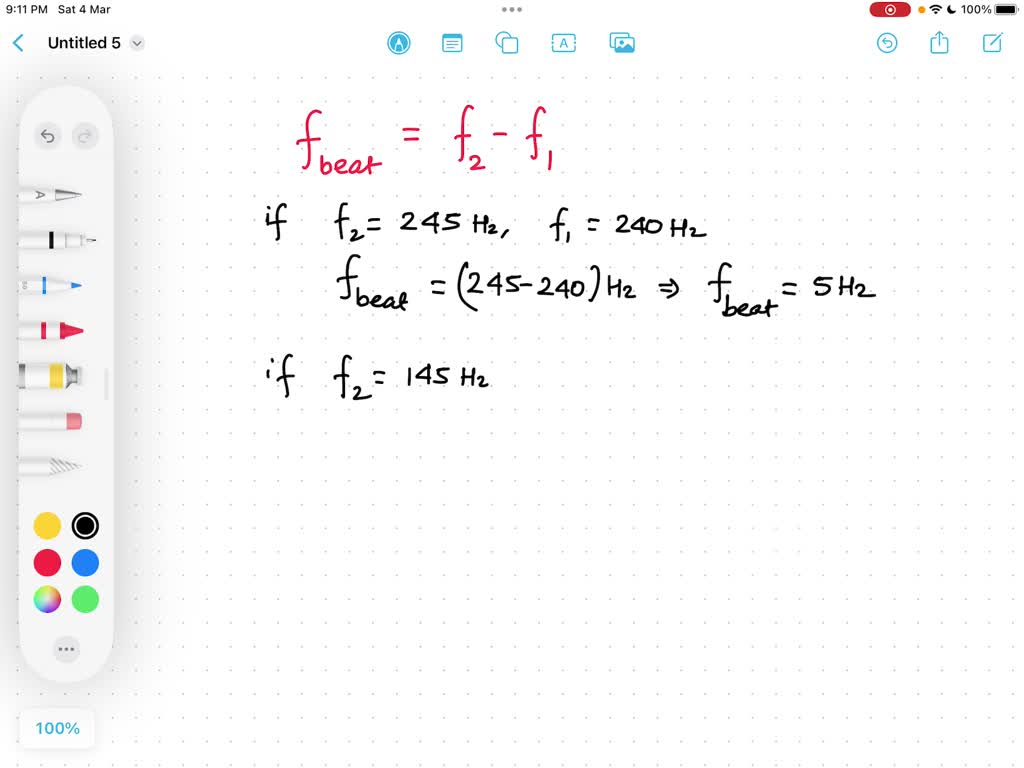 9:11 PM Sat 4 Mar
100%
Untitled 5
A
A
f_beat = f_2 - f_1
if f_2 = 245 Hz, f_1 = 240 Hz
f_beat = (245-240) Hz ⇒ f_beat = 5 Hz
if f_2 = 145 Hz
50
100%